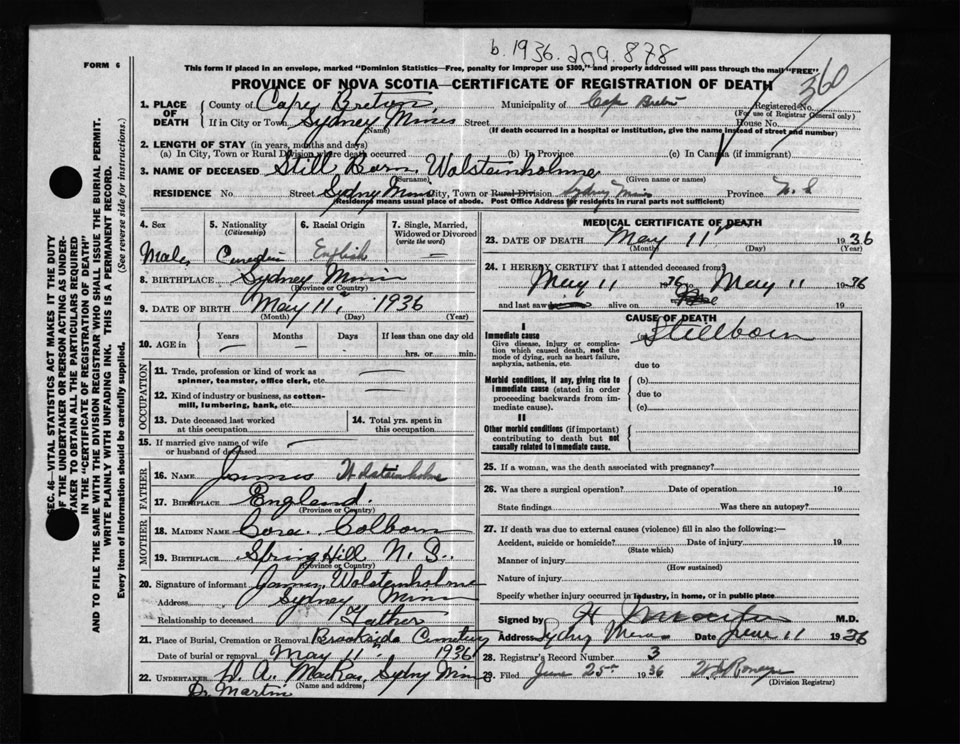 b. 1936. 209. 878
FORM 6
This form if placed in an envelope, marked "Dominion Statistics—Free, penalty for improper use $300," and properly addressed will pass through the mail "FREE"
PROVINCE OF NOVA SCOTIA—CERTIFICATE OF REGISTRATION OF DEATH
360
1. PLACE OF DEATH
County of Cape Breton
Municipality of Cape Breton
Registered No.
(For use of Registrar General only)
If in City or Town Sydney Mines Street House No.
(Name) (If death occurred in a hospital or institution, give the name instead of street and number)
2. LENGTH OF STAY (in years, months and days)
(a) In City, Town or Rural Division where death occurred (b) In Province (c) In Canada (if immigrant)
3. NAME OF DECEASED Still Born Wolstenholme
(Surname) (Given name or names)
RESIDENCE No. Street Sydney Mines City, Town or Rural Division Sydney Mines Province N. S
(Residence means usual place of abode. Post Office Address for residents in rural parts not sufficient)
4. Sex
Male
5. Nationality
(Citizenship)
Canadian
6. Racial Origin
English
7. Single, Married, Widowed or Divorced
(write the word)
—
8. BIRTHPLACE Sydney Mines
(Province or Country)
9. DATE OF BIRTH May 11, 1936
(Month) (Day) (Year)
10. AGE in Years Months Days If less than one day old
— — — hrs. or min.
OCCUPATION
11. Trade, profession or kind of work as spinner, teamster, office clerk, etc.
12. Kind of industry or business, as cotton-mill, lumbering, bank, etc.
13. Date deceased last worked at this occupation
14. Total yrs. spent in this occupation
15. If married give name of wife or husband of deceased
FATHER
16. NAME James Wolstenholme
17. BIRTHPLACE England.
(Province or Country)
MOTHER
18. MAIDEN NAME Cora Colborn
19. BIRTHPLACE Spring Hill N. S.
(Province or Country)
20. Signature of informant James Wolstenholme
Address Sydney Mines
Relationship to deceased Father
21. Place of Burial, Cremation or Removal Brookside Cemetery
Date of burial or removal May 11 1936
22. UNDERTAKER W. A. MacRae, Sydney Mines
(Name and address)
Dr Martin
MEDICAL CERTIFICATE OF DEATH
23. DATE OF DEATH May 11" 1936
(Month) (Day) (Year)
24. I HEREBY CERTIFY that I attended deceased from
May 11 1936 May 11 1936
and last saw alive on 19
CAUSE OF DEATH
I
Immediate cause
Give disease, injury or complication which caused death, not the mode of dying, such as heart failure, asphyxia, asthenia, etc.
(a) Stillborn
due to
Morbid conditions, if any, giving rise to immediate cause (stated in order proceeding backwards from immediate cause).
(b)
due to
(c)
II
Other morbid conditions (if important) contributing to death but not causally related to immediate cause.
25. If a woman, was the death associated with pregnancy?
26. Was there a surgical operation? Date of operation 19
State findings Was there an autopsy?
27. If death was due to external causes (violence) fill in also the following:—
Accident, suicide or homicide? Date of injury 19
(State which)
Manner of injury
(How sustained)
Nature of injury
Specify whether injury occurred in industry, in home, or in public place
Signed by M.D.
Address Sydney Mines Date June 11 1936
28. Registrar's Record Number 3
29. Filed June 25th 1936
(Division Registrar)
SEC. 46—VITAL STATISTICS ACT MAKES IT THE DUTY
OF THE UNDERTAKER OR PERSON ACTING AS UNDERTAKER TO OBTAIN ALL THE PARTICULARS REQUIRED
IN THE "CERTIFICATE OF REGISTRATION OF DEATH"
AND TO FILE THE SAME WITH THE DIVISION REGISTRAR WHO SHALL ISSUE THE BURIAL PERMIT.
WRITE PLAINLY WITH UNFADING INK. THIS IS A PERMANENT RECORD.
Every item of information should be carefully supplied. (See reverse side for instructions.)